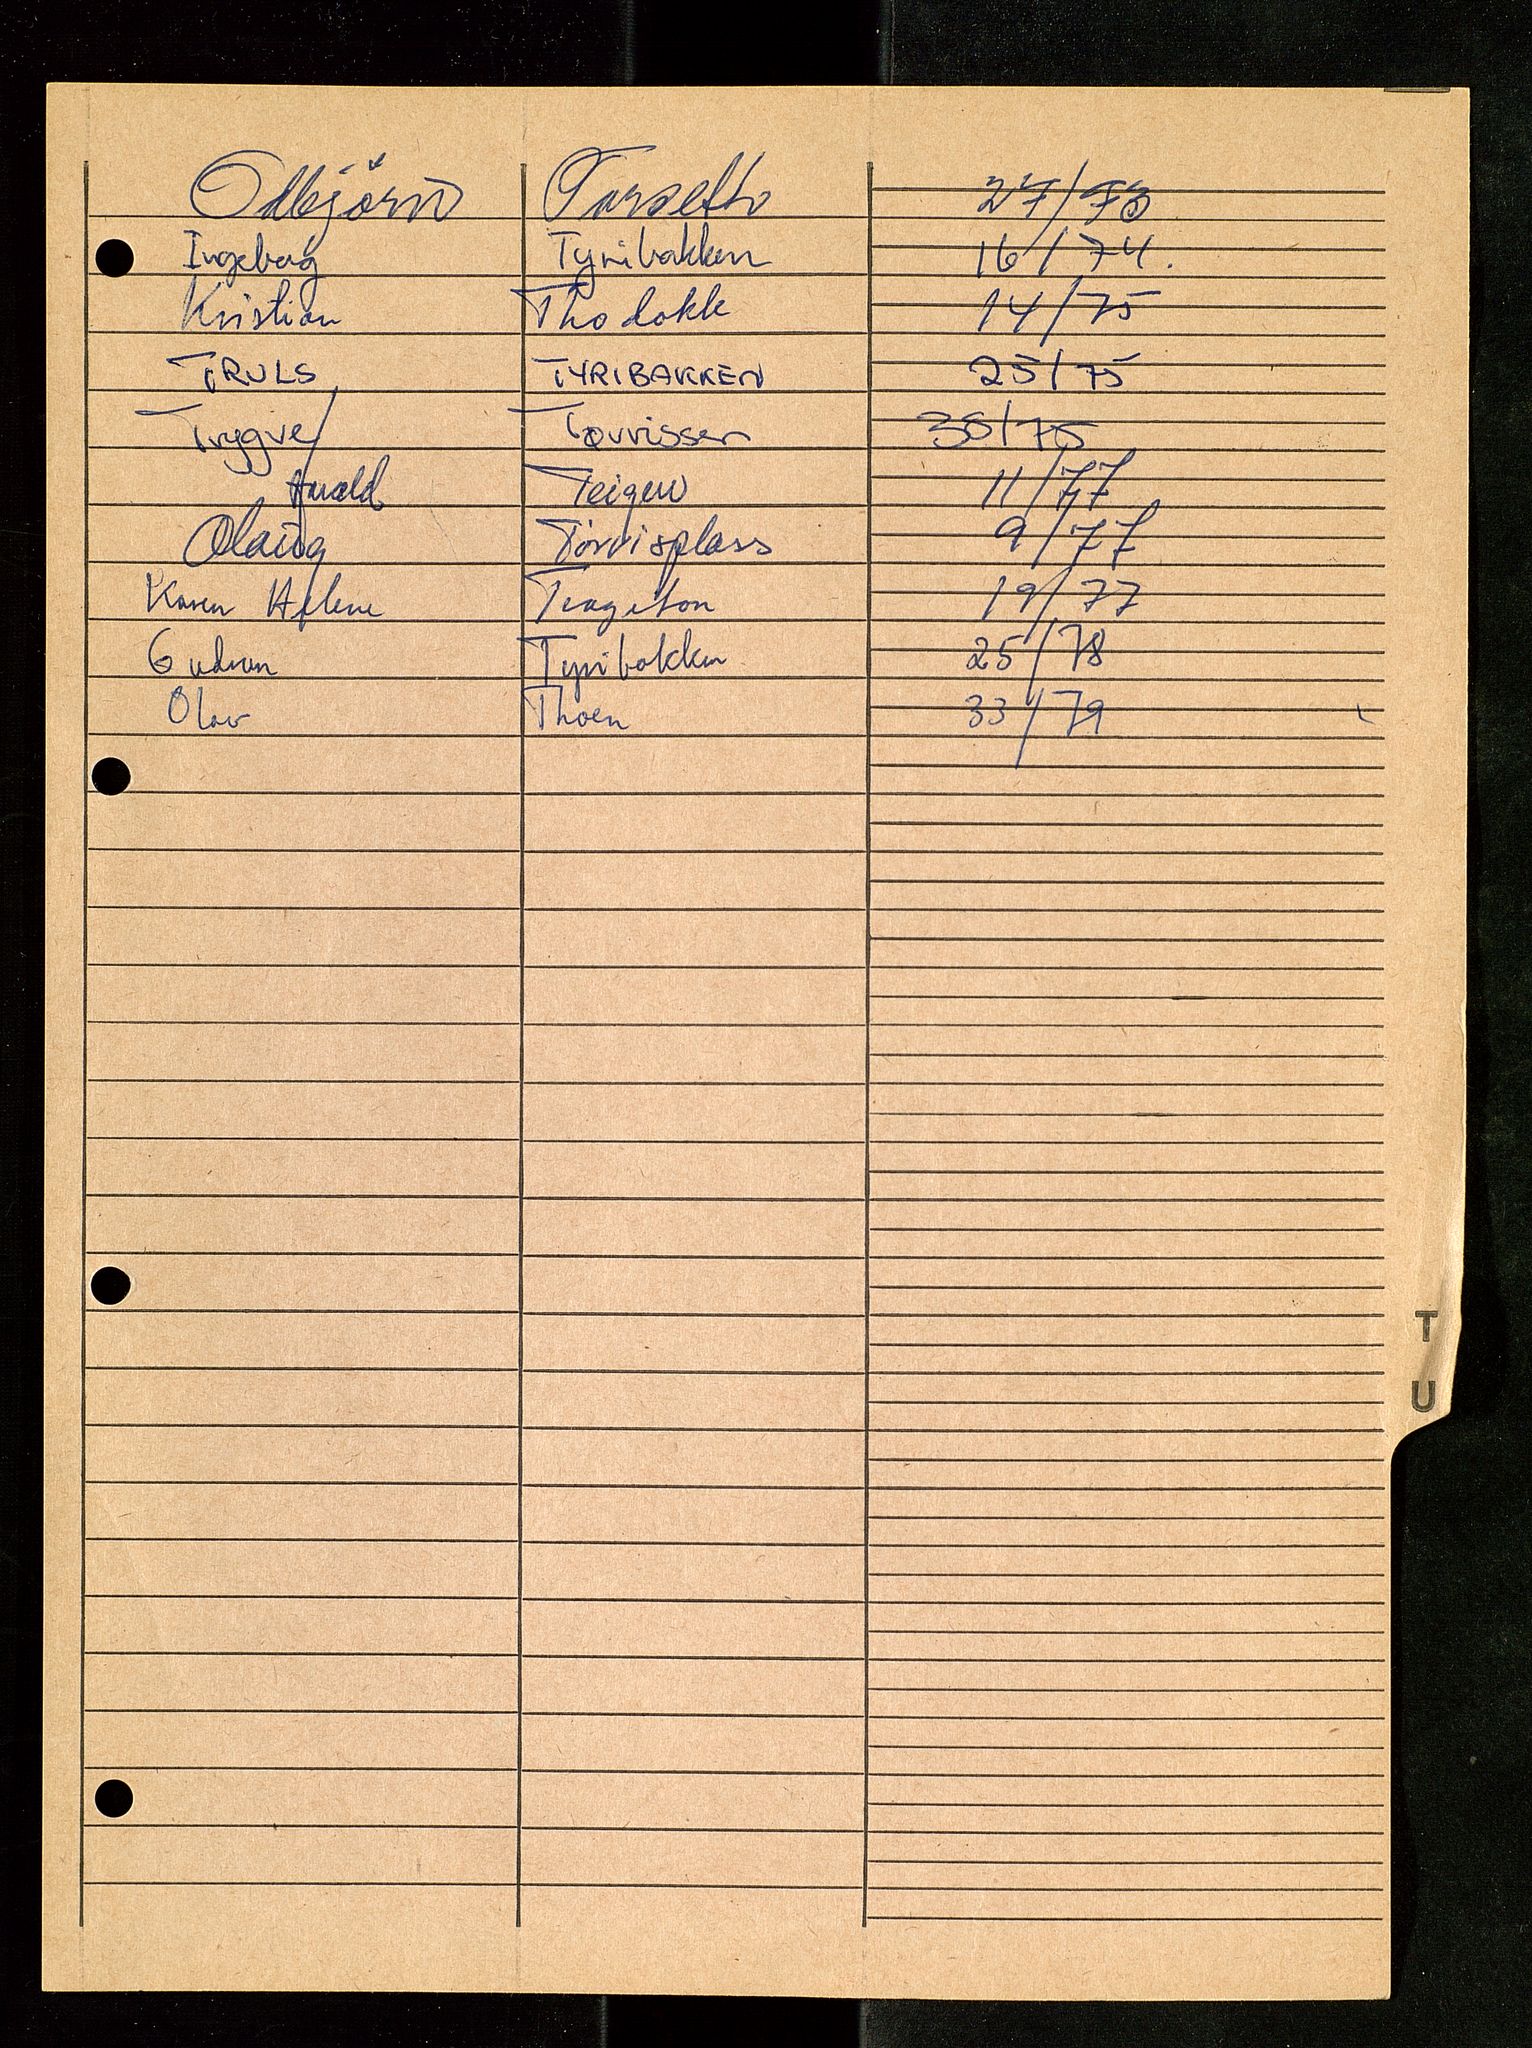 Odbjörn Torsetto 27/73
Ingeborg Tyribakken 16/74.
Kristian Thodokk 14/75
TRULS TYRIBAKKEN 25/75
Trygve Tørrissen 38/75
Harald Teigen 11/77
Olaug Törrisplass 9/77
Karen Helene Trageton 19/77
Gudrun Tyribakken 25/78
Olav Thoen 33/79
T
U